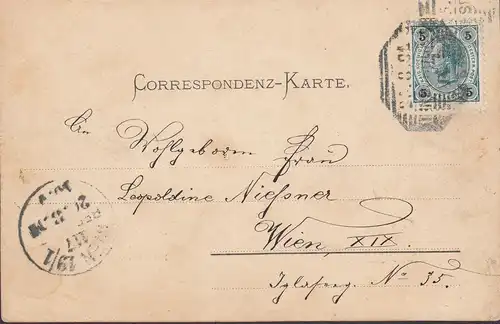 CORRESPONDENZ-KARTE.
5 5
5 5
An
Wohlgeboren Frau
Leopoldine Niessner
Wien, XIX.
Iglaserg. No 35.
WIEN 19/1